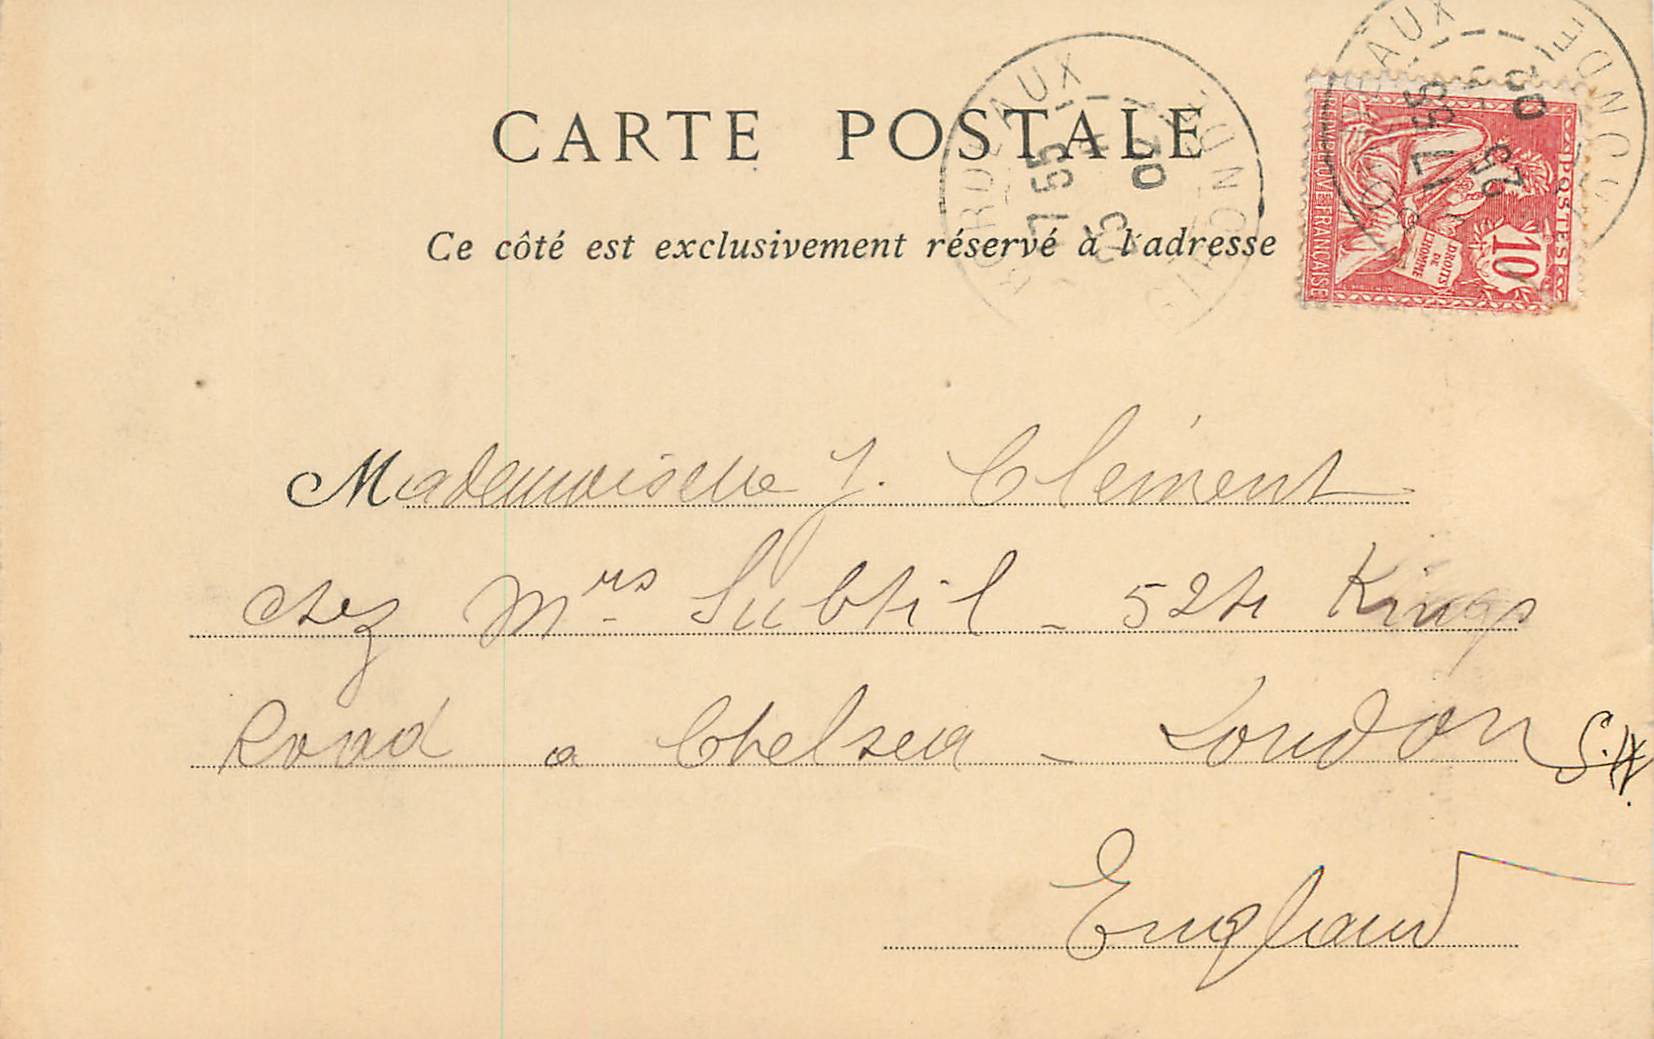 CARTE POSTALE
Ce côté est exclusivement réservé à l'adresse
BORDEAUX GIRONDE
17 55
25
02
BORDEAUX GIRONDE
17 55
25
02
RÉPUBLIQUE FRANÇAISE
POSTES
DROITS DE L'HOMME
10
Mademoiselle J. Clément
chez Mrs Subtil - 524 Kings
Road a Chelsea - London S.W.
England